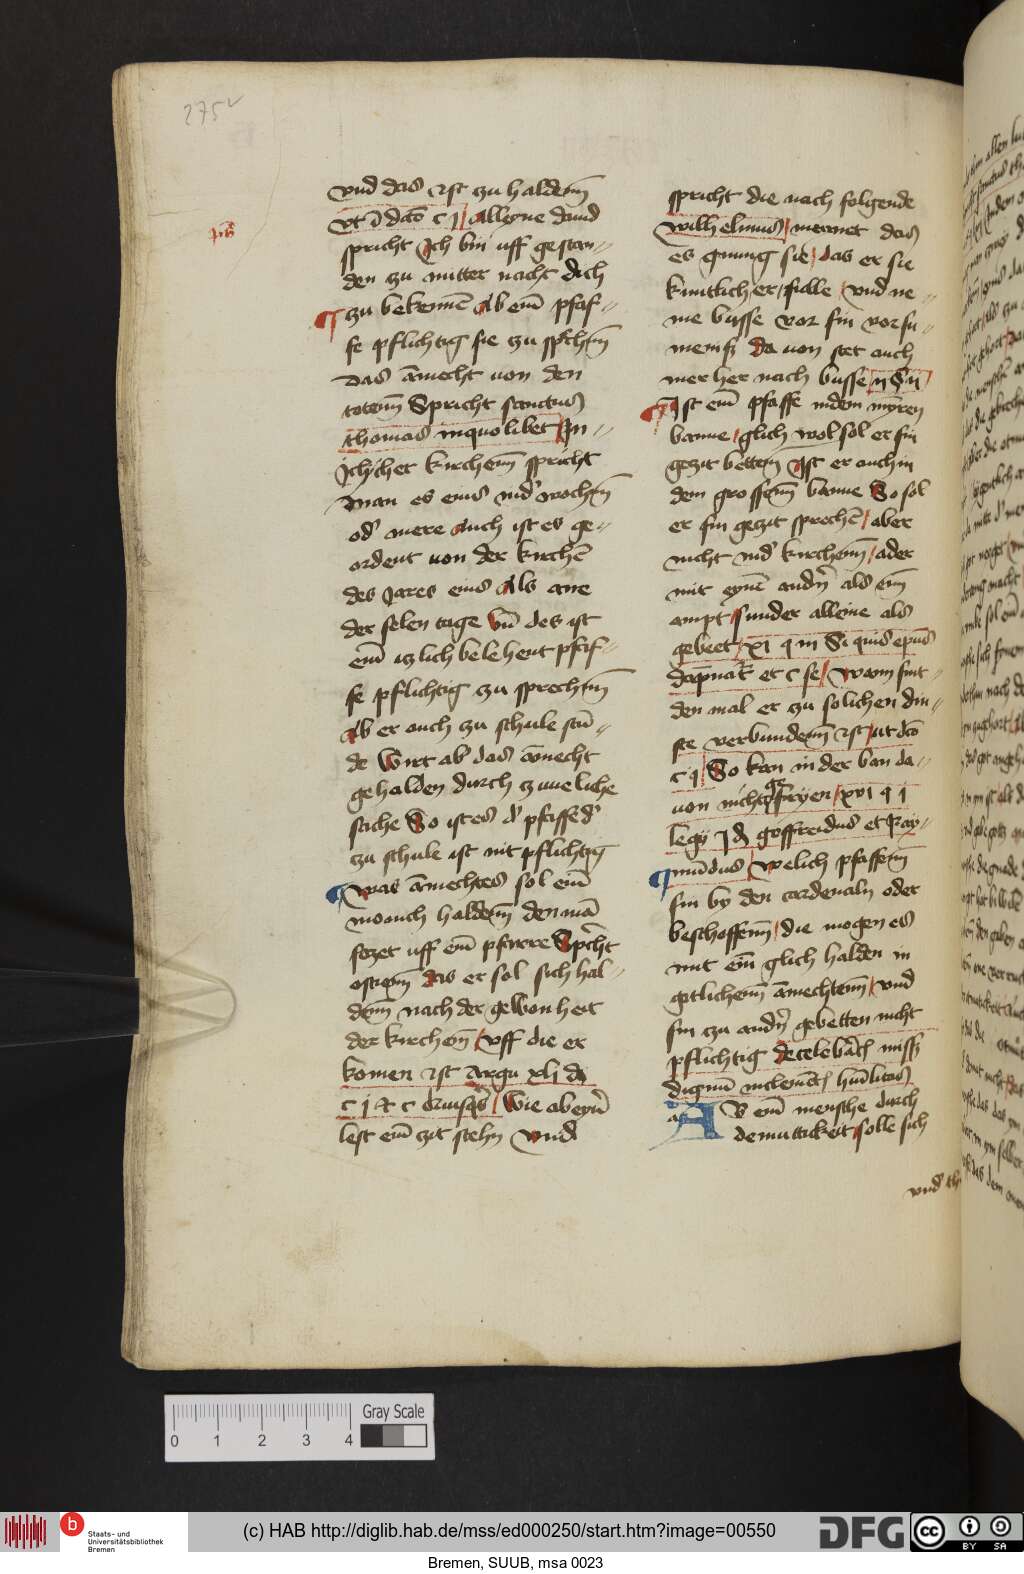 275v
und das ist zu haldem̄
ut ī dc̄to c j alleyne dauid
spricht Ich bin uff gestan=
den zu mitter nacht dich
zu bekennē Ab em̄ pfaf=
fe pflichtig sie zu sp̄chem̄
Das āmecht von den
totem̄ Spricht sanctus
thomas in quolibet In =
Iclicher kirchem̄ spricht
man es eins in d' wochem̄
od' mere Auch ist es ge=
ordent von der kirchē
des Jares eins Als ane
der selen tage Vn̄ des ist
em̄ iczlich belehent pfaf=
fe pflichtig zu sprechem̄
Ab er auch zu schule stū=
de Wirt ab das āmecht
gehalden durch zymeliche
sache So ist es d' pfaffe d'
zu schule ist nit pflichtig
Was āmechtes sol em̄
monch haldem̄ den mā
seczet uff em̄ pfarre Sp̄cht
ostiem̄ das er sol sich hal=
dem̄ nach der gewonheit
der kirchem̄ uff die er
komen ist Argu xlj dj
c j et c
Wie ab eyn̄
lest em̄ zit stehn und
spricht die nach folgende
Wilhelmus meynet das
es gnung sie das er sie
kuntlich er fulle und ne=
me busse vor sin vorsu=
meniß da von stet auch
mer her nach busse
Ist em̄ pfaffe in dem mynren
banne glich wol sol er sin
gezit bettem̄ Ist er auch in
dem grossem̄ banne So sol
er sin gezit sprechē aber
nicht in d' kirchem̄ ader
mit eynē andn̄ als em̄
ampt sunder alleine als
gebeet xi q iii Si quis ep̄us
et c
Wann sint=
den mal er zu solichen din=
ste verbundem̄ ist ut dc̄o
c j So kan in der ban da=
uon nicht gefryen xvi q j
goffreidus et Ray=
mūdus Welich pfaffem̄
sin by den cardenaln oder
beschoffem̄ die mogen es
mit em̄ glich halden in
gotlichem̄ āmechtem̄ und
sin zu andn̄ gebetten nicht
pflichtig de celebāt̄ miss̄
dignū in clemēt̄ Hūilitas
AB em̄ mensche durch
demuttickeit solle sich
Gray Scale
0 1 2 3 4
b
Staats- und
Universitätsbibliothek
Bremen
(c) HAB http://diglib.hab.de/mss/ed000250/start.htm?image=00550
DFG
cc
BY SA
Bremen, SUUB, msa 0023